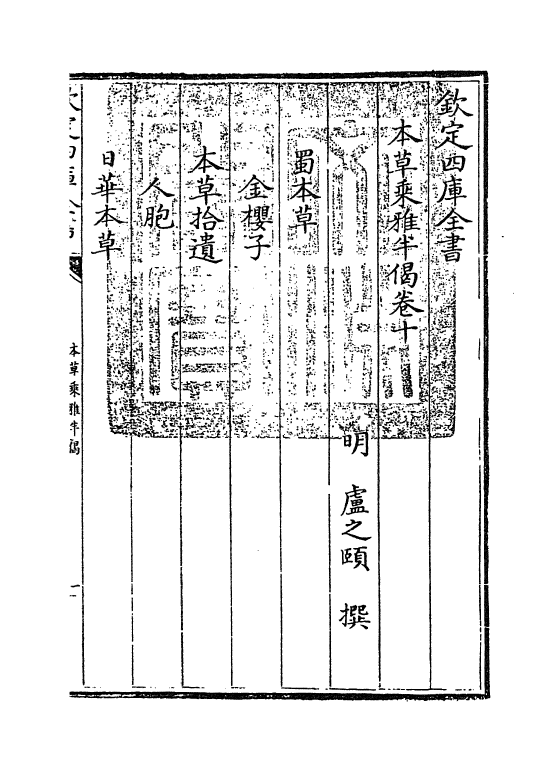 欽定四庫全書
本草乘雅半偈卷十
明 盧之頤 撰
蜀本草
金櫻子
本草拾遺
人胞
日華本草
本草乘雅半偈
一